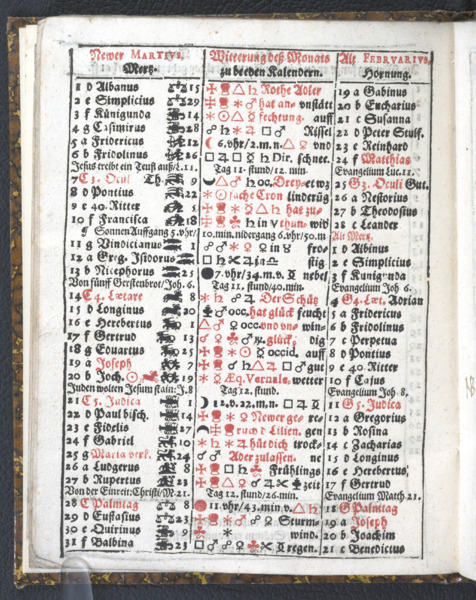 Newer MARTIVS, Witterung deß Monats Alt FEBRVARIVS,
Mertz. zu beeden Kalendern. Hornung.
1 d Albanus 15 Rothe Adler 19 a Gabinus
2 e Simplicius 29 hat an vnstätt 20 b Eucharius
3 f Künigunda 14 fechtung. auff 21 c Susanna
4 g Casimirus 28 Rissel 22 d Peter Stulf.
5 a Fridericus 12 6.vhr/2.m.n. vnd 23 e Reinhard
6 b Fridolinus 26 Dir. schnee. 24 f Matthias
Jesus treibt ein Teuff auß L.11. Tag 11. stund/12. min. Evangelium Luc. 11.
7 C3. Oculi 9 occ. Drey- etwz 25 G3. Oculi Gut.
8 d Pontius 22 fache Cron linderüg 26 a Nestorius
9 e 40. Ritter 5 hat zu- 27 b Theodosius
10 f Francisca 18 in thun- wid 28 c Leander
Sonnen Auffgang 5. vhr/ 10. min. nidergang 6. vhr/50.m Alt Mertz.
11 g Vindicianus 1 in fro- 1 d Albinus
12 a Greg. Isidorus 13 in stig 2 e Simplicius
13 b Nicephorus 25 7.vhr/34.m.v. nebel 3 f Kunigunda
Von fünff Gerstenbrot/ Joh. 6. Tag 11. stund/40. min. Evangelium Joh. 6.
14 C4. Lætare 8 Der Schütz 4 G4. Læt. Adrian
15 d Longinus 20 occ. hat glück feucht 5 a Fridericus
16 e Herebertus 1 occ. vnd vn- win- 6 b Fridolinus
17 f Gertrud 13 glück; dig 7 c Perpetua
18 g Eduartus 25 occid. auff 8 d Pontius
19 a Joseph 7 gut 9 e 40. Ritter
20 b Joch. 19 Æq. Vernale. wetter 10 f Cajus
Juden wolten Jesum stain: J. 8 Tag 12. stund. Evangelium Joh. 8,
21 C5. Judica 1 12.v.22.m.n. 11 G5. Judica
22 d Paul bisch. 14 Newer ge- re- 12 a Gregorius
23 e Fidelis 27 ruch d Lilien. gen 13 b Rosina
24 f Gabriel 10 hüt dich trock- 14 c Zacharias
25 g Maria verk. 24 Aderzulassen. ne 15 d Longinus
26 a Ludgerus 8 Frühlings 16 e Herebertus
27 b Rupertus 23 zeit 17 f Gertrud
Von der Einreit: Christi M. 21. Tag 12. stund/26. min. Evangelium Match. 21.
28 C Palmtag 8 11.vhr/43.min.v. 18 G Palmtag
29 d Eustasius 23 Sturm- 19 a Joseph
30 e Quirinus 9 wind. 20 b Joachim
31 f Balbina 23 regen. 21 c Benedictus